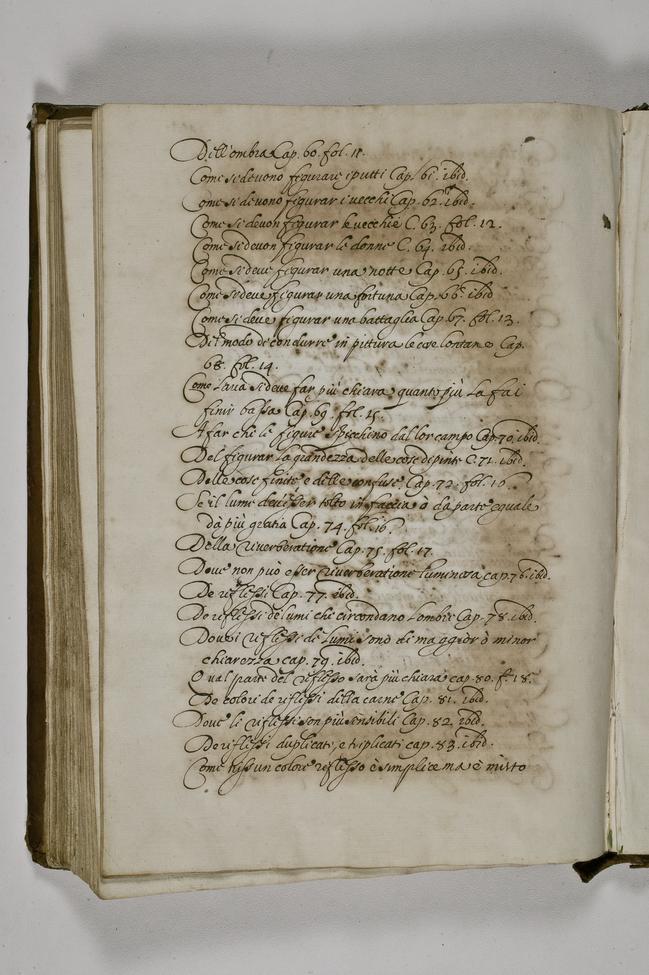 Dell'ombra Cap. 60. fol. 11.
Come si devono figurare i putti Cap. 61. ibid.
Come si devono figurar i vecchi Cap. 62. ibid.
Come si devon figurar le vecchie C. 63. fol. 12.
Come si devon figurar le donne C. 64. ibid.
Come si deve figurar una notte Cap. 65. ibid.
Come si deve figurar una fortuna Cap. 66. ibid
Come si deve figurar una battaglia Cap. 67. fol. 13.
Del modo de condurre in pittura le cose lontane Cap.
68. fol. 14.
Come l'aria si deve far più chiara quanto più la fai
finir bassa Cap. 69. fol. 15.
A far che le figure spicchino dal lor campo Cap. 70. ibid.
Del figurar la grandezza delle cose dipinte C. 71. ibid.
Delle cose finite, e delle confuse Cap. 72. fol. 16.
Se il lume dev'esser tolto in faccia ò dà parte, e quale
dà più gratia Cap. 74. fol. 16.
Della riverberatione Cap. 75. fol. 17.
Dove non può esser riverberatione luminosa cap. 76. ibid.
De riflessi Cap. 77. ibid.
De riflessi de lumi che circondano l'ombre Cap. 78. ibid.
Dove i riflessi de lumi sono di maggior ò minor
chiarezza cap. 79. ibid.
Qual parte del riflesso sarà più chiara cap. 80. f. 18.
De colori de riflessi della carne Cap. 81. ibid.
Dove li riflessi son più sensibili Cap. 82. ibid.
De riflessi duplicati, e triplicati cap. 83. ibid.
Come nissun colore riflesso è simplice ma è misto